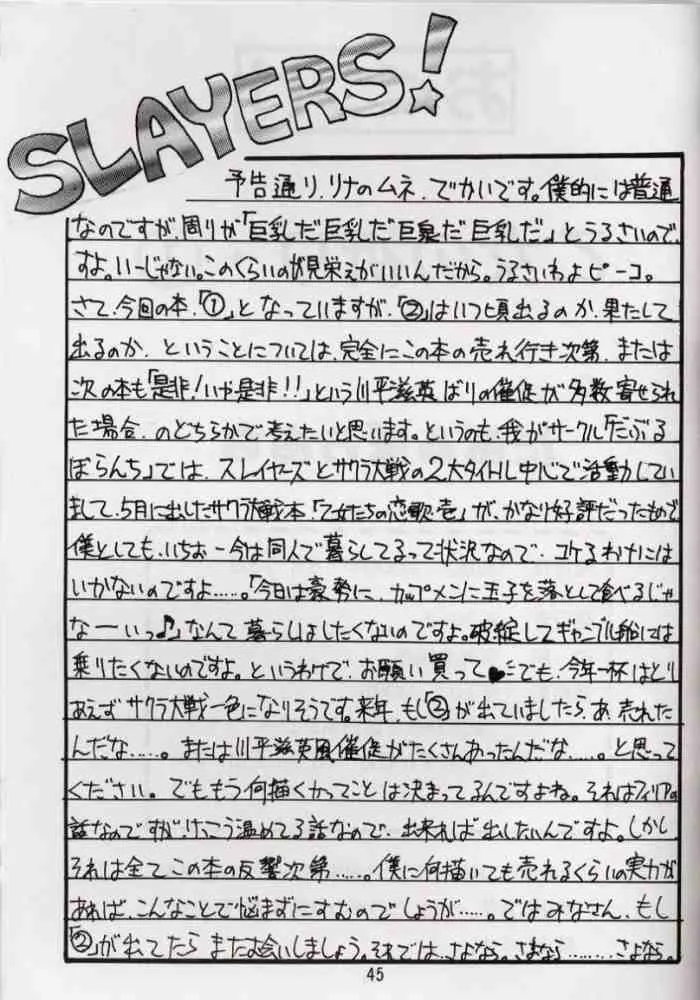 SLAYERS!
予告通り、リナのムネ、でかいです。僕的には普通
なのですが、周りが「巨乳だ巨乳だ巨泉だ巨乳だ」とうるさいので
すよ。いーじゃない。このくらいのが見栄えがいいんだから。うるさいわよピーコ。
さて、今回の本、「①」となっていますが、「②」はいつ頃出るのか、果たして
出るのか、ということについては、完全にこの本の売れ行き次第、または
次の本も「是非！いや是非！！」という川平滋英ばりの催促が多数寄せられ
た場合、のどちらかで考えたいと思います。というのも、我がサークル「だぶる
ぼらんち」では、スレイヤーズとサクラ大戦の2大タイトル中心で活動してい
まして、5月に出したサクラ大戦本、「乙女たちの恋歌壱」が、かなり好評だったもので
僕としても、いちお一今は同人で暮らしてるって状況なので、コケるわけには
いかないのですよ……。「今日は豪勢に、カップメンに玉子を落として食べるじゃ
なーいっ♪」なんて暮らしはしたくないのですよ。破綻してギャンブル船には
乗りたくないのですよ。というわけで、お願い買って♥でも、今年一杯はとり
あえずサクラ大戦一色になりそうです。来年、もし「②」が出ていましたら、あ、売れた
んだな……。または川平滋英風催促がたくさんあったんだな……。と思って
ください。でももう何描くかってことは決まってるんですよね。それはフィリアの
話なのですが、けっこう温めてる話なので、出来れば出したいんですよ。しかし
それは全てこの本の反響次第……。僕に何描いても売れるくらいの実力が
あれば、こんなことで悩まずにすむのでしょうが……。ではみなさん、もし
「②」が出てたらまたお会いしましょう。それでは、さよなら。さよなら………さよなら。
45